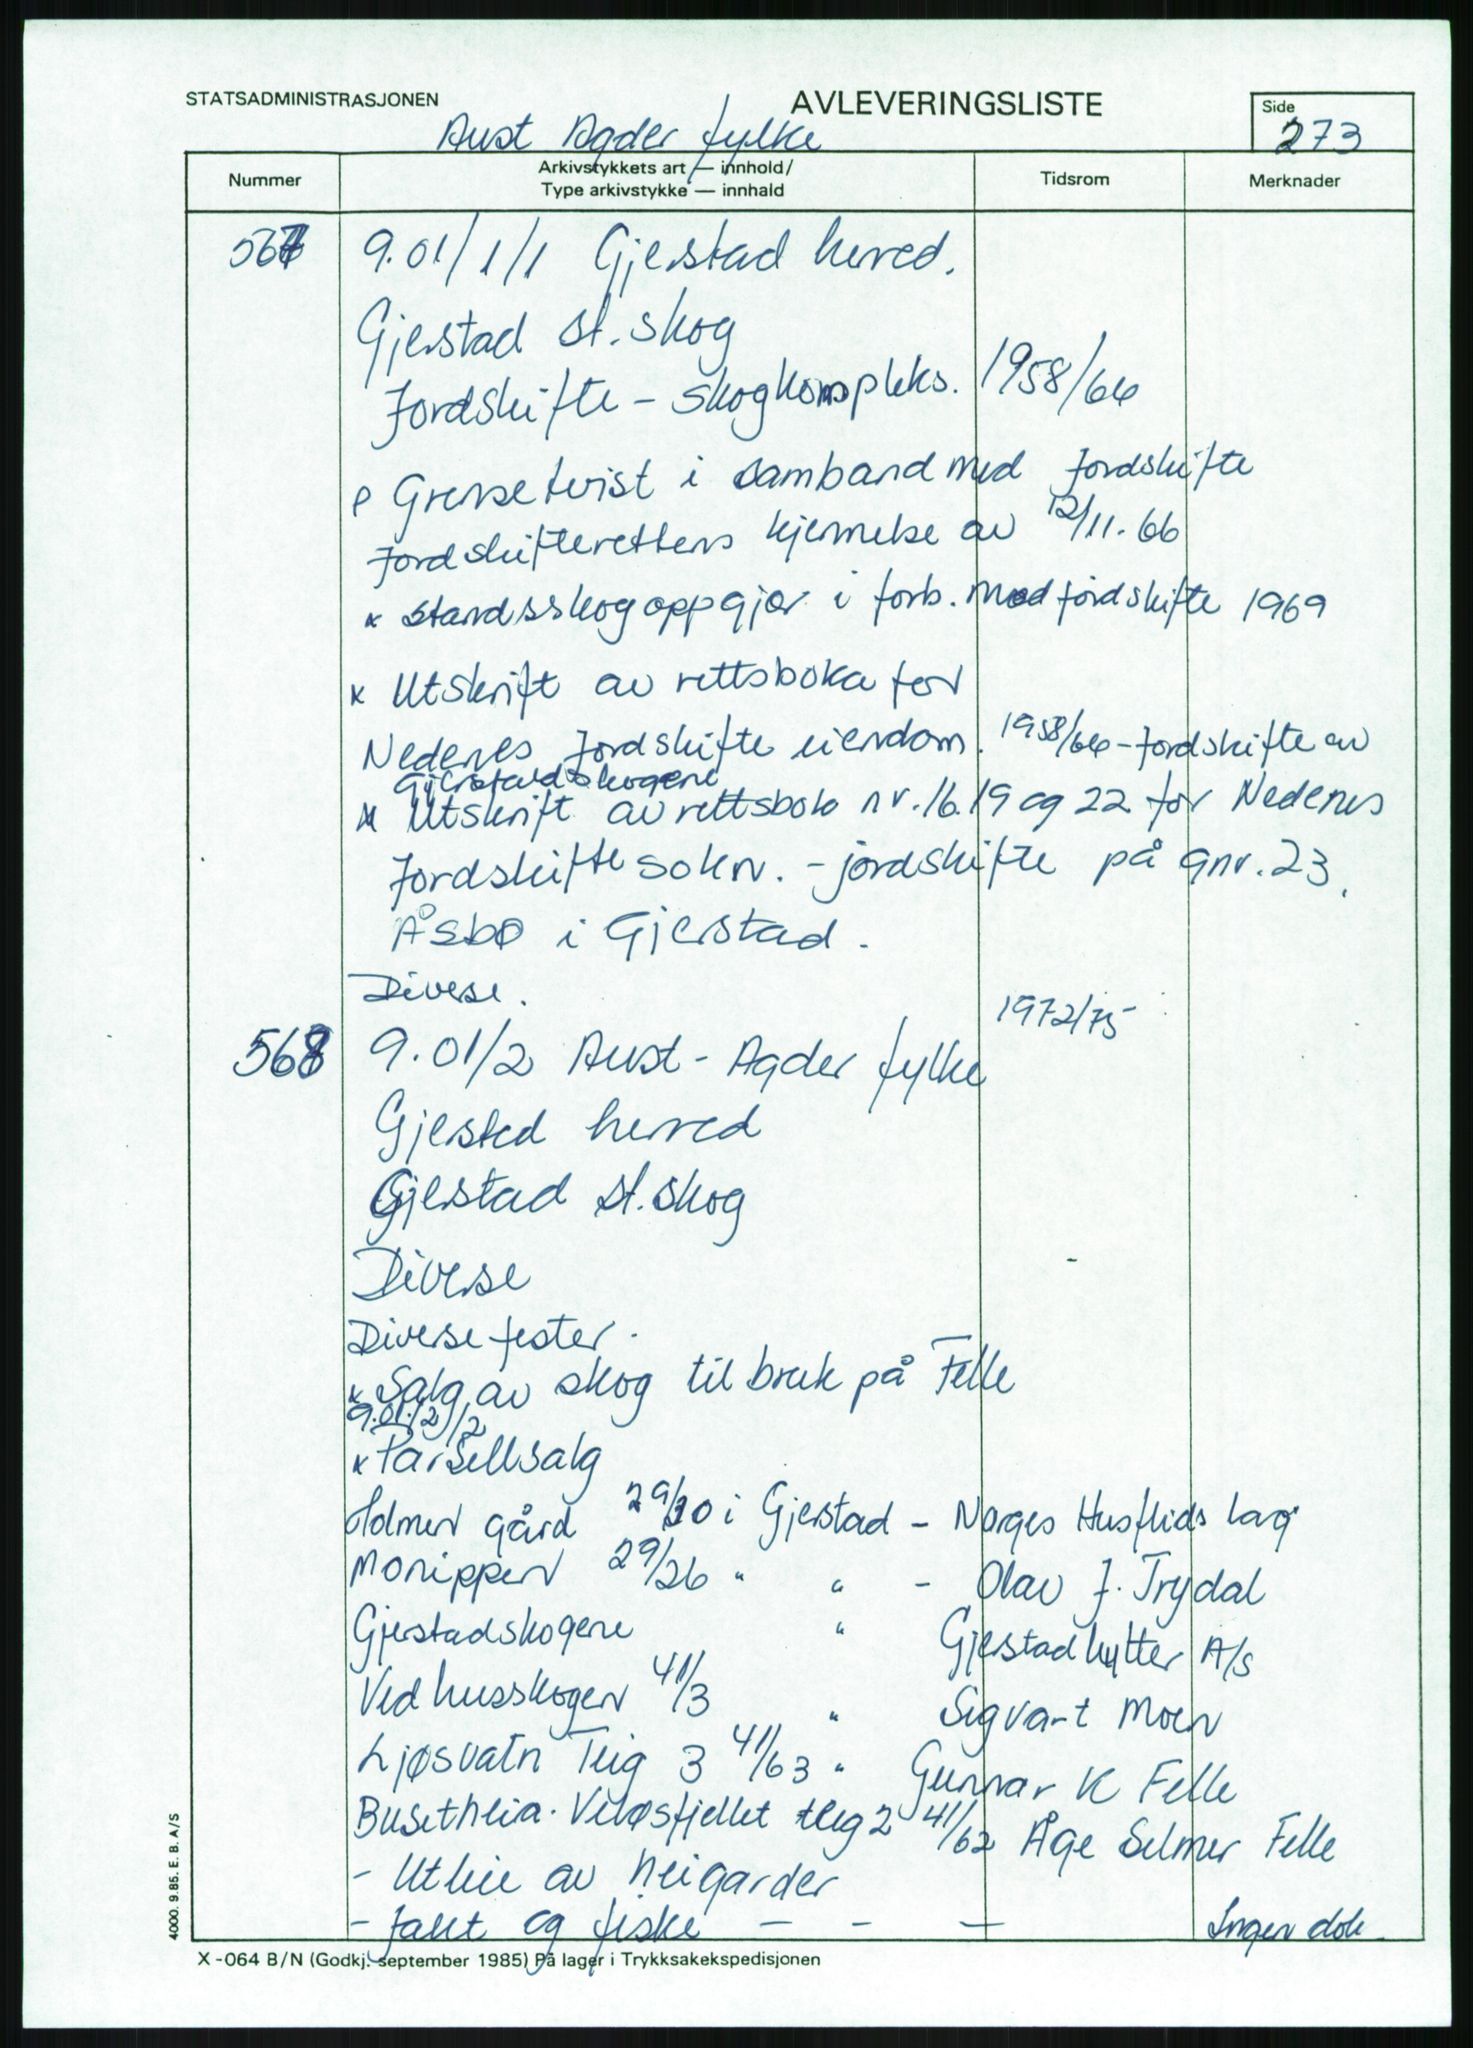 STATSADMINISTRASJONEN
AVLEVERINGSLISTE
Side
273
Aust Agder fylke
Nummer
Arkivstykkets art — innhold/
Type arkivstykke — innhald
Tidsrom
Merknader
567 9.01/1/1 Gjerstad herred.
Gjerstad st. skog
Jordskifte - skogkompleks. 1958/66
Grensetvist i samband med Jordskifte
Jordskifterettens kjennelse av 12/11. 66
x standsskogoppgjør i forb. med jordskifte 1969
x Utskrift av rettsboka for
Nedenes Jordskifte eiendom. 1958/66 - Jordskifte av
Gjerstadskogene
x Utskrift av rettsbok nr. 16. 19 og 22 for Nedenes
Jordskifte sokn. - jordskifte på gnr. 23.
Åsbø i Gjerstad.
Diverse.
1972/75
568 9.01/2 Aust - Agder fylke
Gjersted herred
Gjerstad st. skog
Diverse
Diverse fester.
x Salg av skog til bruk på Felle
9.01./2/2
x Parsellsalg
Holmen gård 29/30 i Gjerstad - Norges Husflids lag
Monippen 29/26 " " - Olav J. Trydal
Gjerstadskogene " Gjerstadhytter A/S
Vedhusskogen 41/3 " Sigvart Moen
Ljøsvatn Teig 3 41/63 " Gunnar K Felle
Busetheia. Veløsfjellet teig 2 41/62 Åge Selmer Felle
- Utleie av heigarder
- Jakt og fiske — — — Ingen dok.
4000. 9.85. E. B. A/S
X-064 B/N (Godkj. september 1985) På lager i Trykksakekspedisjonen